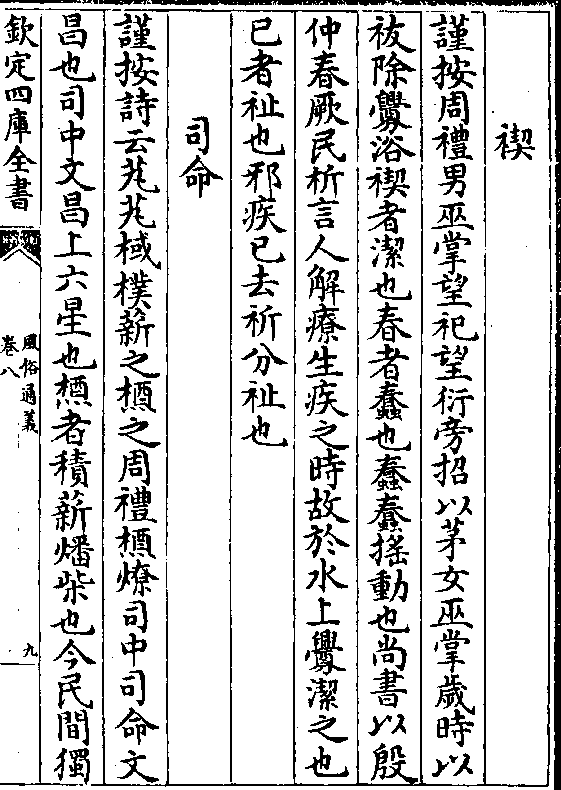 禊
謹按周禮男巫掌望祀望衍旁招以茅女巫掌歲時以
祓除釁浴禊者潔也春者蠢也蠢蠢揺動也尚書以殷
仲春厥民析言人解療生疾之時故於水上釁潔之也
巳者祉也邪疾已去祈介祉也
司命
謹按詩云芃芃棫樸薪之槱之周禮槱燎司中司命文
昌也司中文昌上六星也槱者積薪燔柴也今民間獨
欽定四庫全書
風俗通義
卷八
九